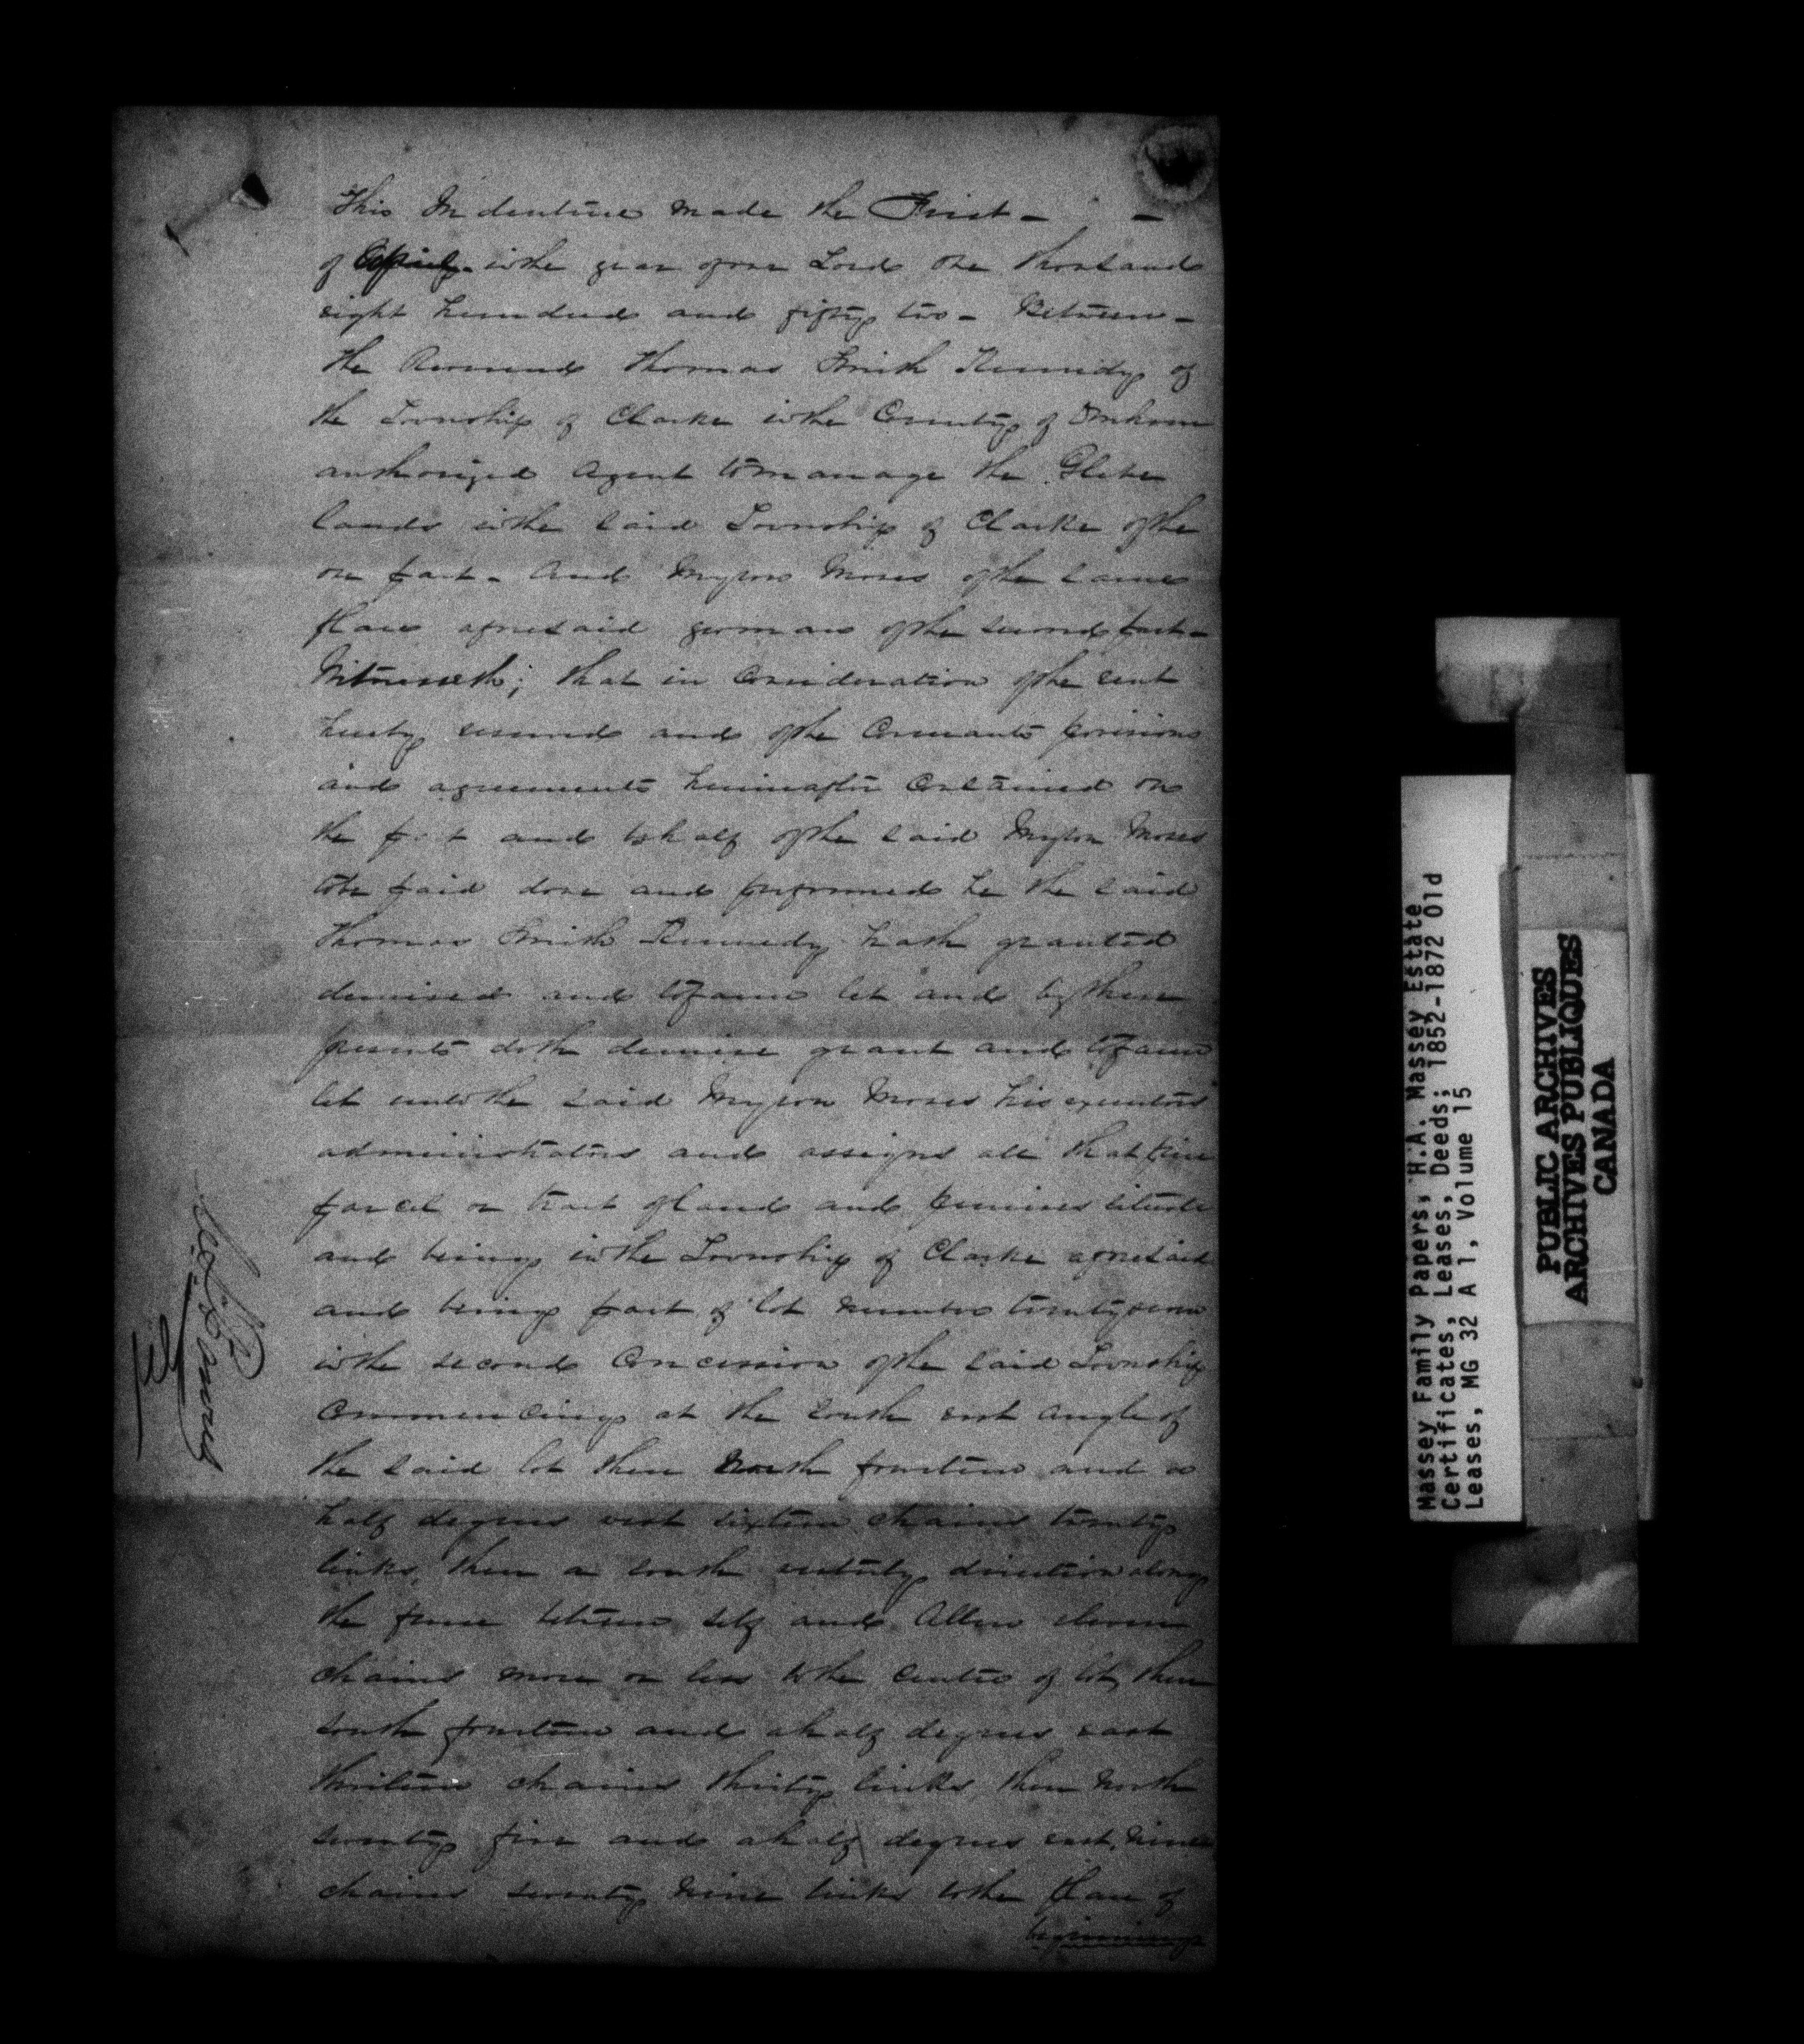 This Indenture made the First - -
of April - in the year of our Lord one thousand
eight hundred and fifty two - Between -
the Reverend Thomas Smith Kennedy of
the Township of Clarke in the County of Durham
authorized Agent to manage the Glebe
lands in the said Township of Clarke of the
one part - And Myron Moses of the same
place aforesaid yeoman of the second part -
Witnesseth; that in consideration of the rent
hereby reserved and of the Covenants provisions
and agreements hereinafter contained on
the part and behalf of the said Myron Moses
to be paid done and performed he the said
Thomas Smith Kennedy hath granted
demised and to farm let and by these
presents doth demise grant and to farm
let unto the said Myron Moses his executors
administrators and assigns all that piece
parcel or tract of land and premises situate
and being in the Township of Clarke aforesaid
and being part of lot number twenty seven
in the second Concession of the said Township
Commencing at the south east angle of
the said lot then north fourteen and a
half degrees west sixteen chains twenty
links, then a south westerly direction along
the fence between self and Allen eleven
chains more or less to the centre of lot, then
south fourteen and a half degrees east
thirteen chains thirty links, then North
seventy five and a half degrees east, nine
chains seventy nine links to the place of
beginning
Massey Family Papers, H.A. Massey Estate
Certificates, Leases, Deeds; 1852-1872 Old
Leases, MG 32 A 1, Volume 15
PUBLIC ARCHIVES
ARCHIVES PUBLIQUES
CANADA